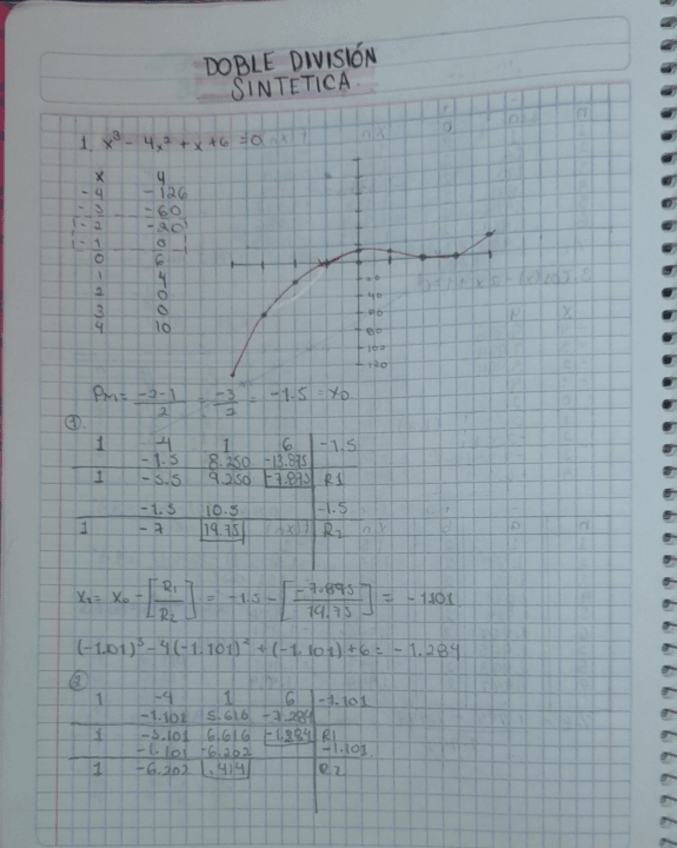 DOBLE DIVISIÓN
SINTETICA
1. x³ - 4x² + x + 6 = 0
x y
-4 -126
-3 -60
-2 -20
-1 0
0 6
1 4
2 0
3 0
4 10
40
80
100
120
Pm = -2-1/2 = -3/2 = -1.5 = x₀
①
1 -4 1 6 | -1.5
-1.5 8.250 -13.875
1 -5.5 9.250 -7.875 R1
-1.5 10.5 -1.5
1 -7 19.75 R2
X₁ = X₀ - [R₁/R₂] = -1.5 - [-7.875/19.75] = -1.101
(-1.01)³ - 4(-1.101)² + (-1.101) + 6 = -1.284
②
1 -4 1 6 | -1.101
-1.101 5.616 -7.284
1 -5.101 6.616 -1.284 R1
-1.101 -6.202 -1.101
1 -6.202 .414 R2